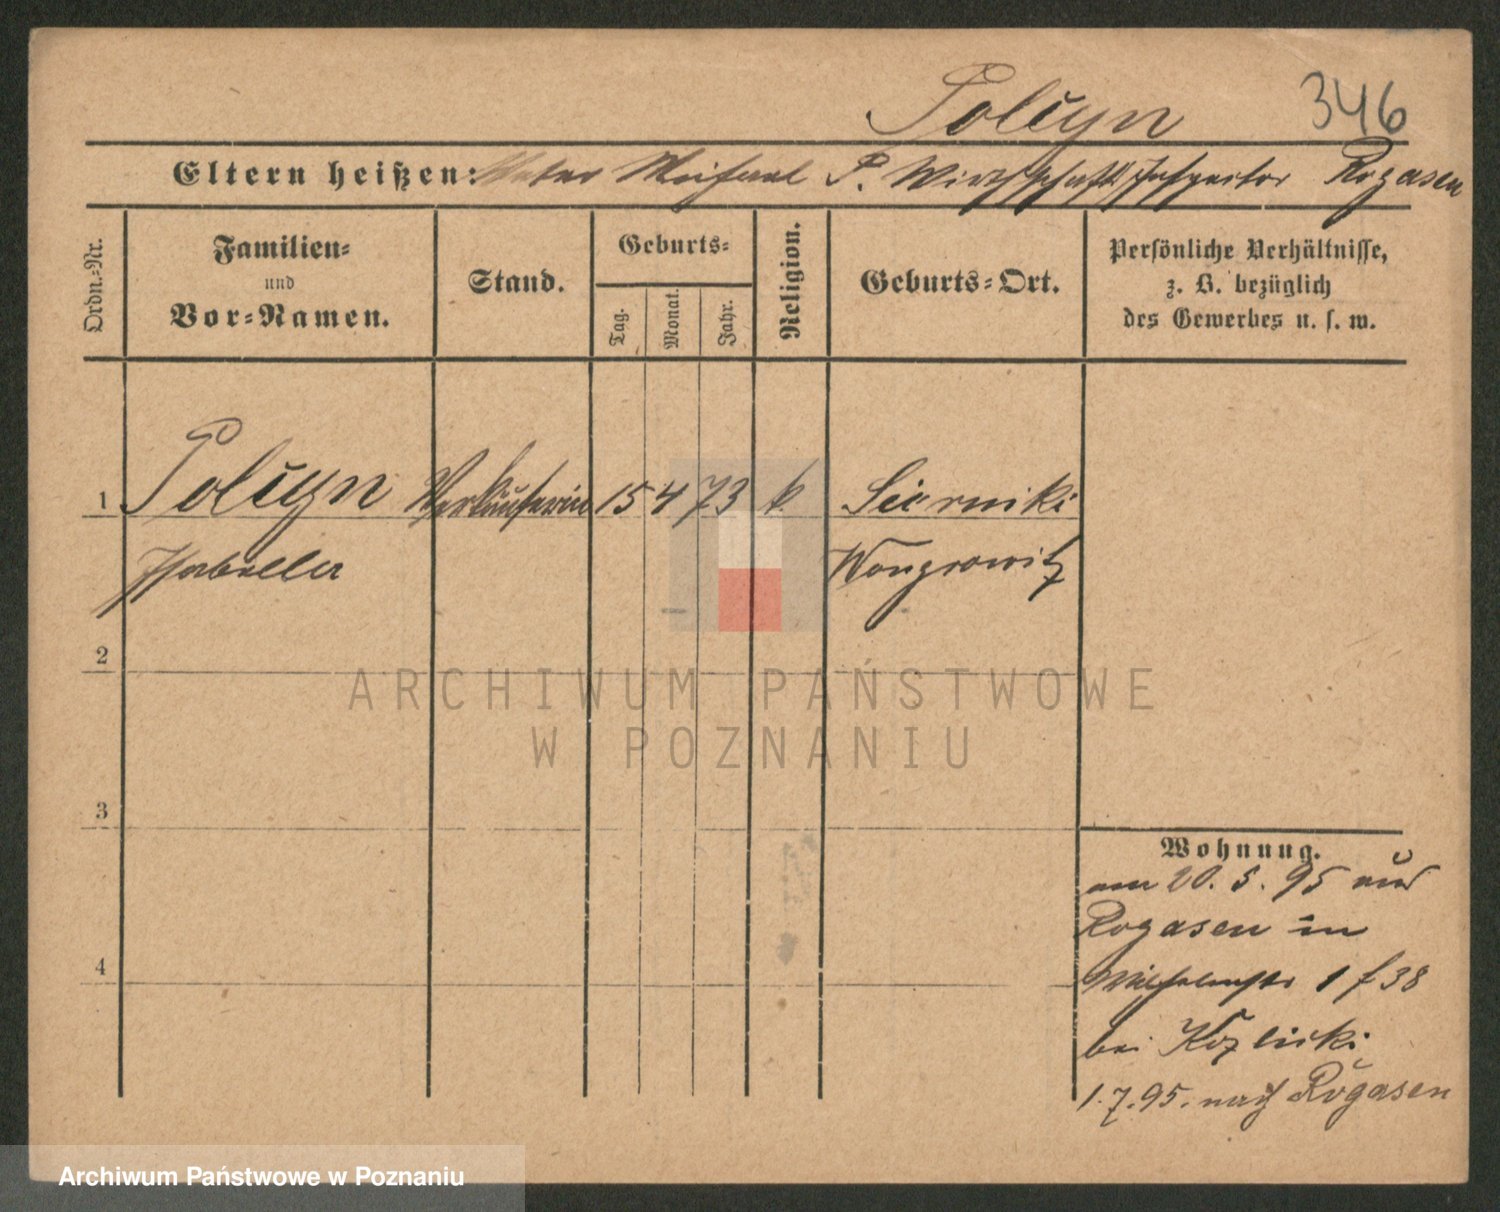 Poluyn 346
Eltern heißen: Vater Michael P. Wirthschaftsinspector Rogasen
Ordn.-Nr.
Familien-
und
Vor-Namen.
Stand.
Geburts-
Tag.
Monat.
Jahr.
Religion.
Geburts-Ort.
Persönliche Verhältnisse,
z. B. bezüglich
des Gewerbes u. s. w.
1 Poluyn Verkäuferin 15 4 73 k. Sierniki
Isabella Wongrowitz
2
3
4
Wohnung.
am 20. 5. 95 aus
Rogasen in
Wilhelmstr 1 f 38
bei Kozlicki
1.7.95. nach Rogasen
ARCHIWUM PAŃSTWOWE
W POZNANIU
Archiwum Państwowe w Poznaniu